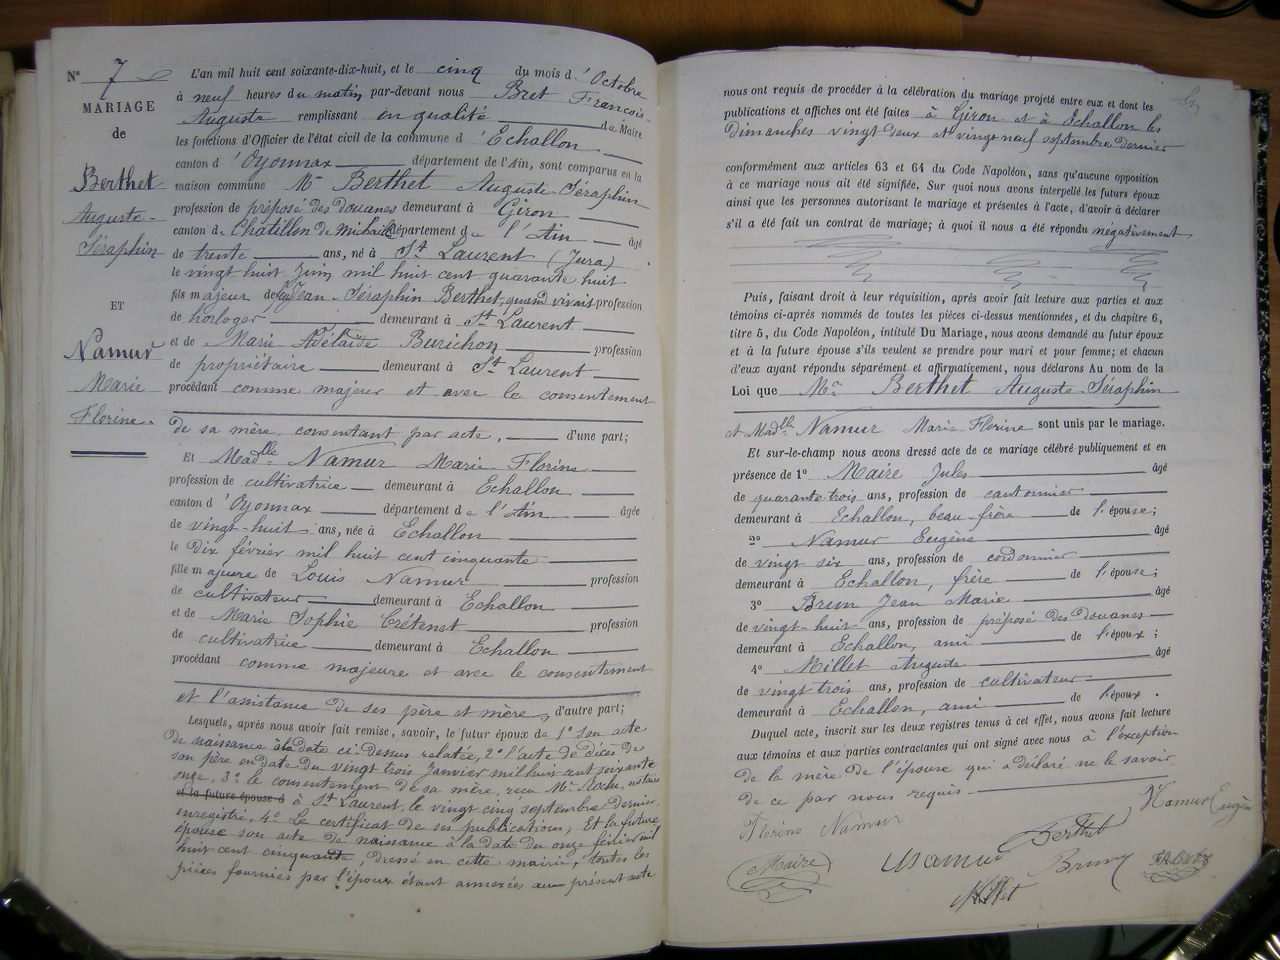 N° 7
MARIAGE
de
Berthet
Auguste-
Séraphin
ET
Namur
Marie
Florine.
L'an mil huit cent soixante-dix-huit, et le cinq du mois d'Octobre
à neuf heures du matin par-devant nous Bret François-
Auguste remplissant en qualité de Maire
les fonctions d'Officier de l'état civil de la commune d'Echallon
canton d'Oyonnax département de l'Ain, sont comparus en la
maison commune Mr Berthet Auguste-Séraphin
profession de préposé des douanes demeurant à Giron
canton de Châtillon de Michaille département de l'Ain âgé
de trente ans, né à St Laurent (Jura)
le vingt huit Juin mil huit cent quarante huit
fils majeur de feu Jean-Séraphin Berthet, quand vivait profession
de horloger demeurant à St Laurent
et de Marie Adélaïde Burichon profession
de propriétaire demeurant à St Laurent
procédant comme majeur et avec le consentement
de sa mère, consentant par acte, d'une part;
Et Madlle Namur Marie Florine
profession de cultivatrice demeurant à Echallon
canton d'Oyonnax département de l'Ain âgée
de vingt-huit ans, née à Echallon
le dix février mil huit cent cinquante
fille majeure de Louis Namur profession
de cultivateur demeurant à Echallon
et de Marie Sophie Crétenet profession
de cultivatrice demeurant à Echallon
procédant comme majeure et avec le consentement
et l'assistance de ses père et mère, d'autre part;
Lesquels, après nous avoir fait remise, savoir, le futur époux de 1° son acte
de naissance à la date ci-dessus relatée, 2° l'acte de décès de
son père en date du vingt trois Janvier mil huit cent soixante
onze, 3° le consentement de sa mère, reçu Me notaire
et la future épouse d à St Laurent, le vingt cinq septembre dernier,
enregistré, 4° Le certificat de ses publications, Et la future
épouse son acte de naissance à la date du onze février mil
huit cent cinquante, dressé en cette mairie, toutes les
pièces fournies par l'époux étant annexées au présent acte
nous ont requis de procéder à la célébration du mariage projeté entre eux et dont les
publications et affiches ont été faites à Giron et à Echallon les
dimanches vingt deux et vingt neuf septembre dernier
conformément aux articles 63 et 64 du Code Napoléon, sans qu'aucune opposition
à ce mariage nous ait été signifiée. Sur quoi nous avons interpellé les futurs époux
ainsi que les personnes autorisant le mariage et présentes à l'acte, d'avoir à déclarer
s'il a été fait un contrat de mariage; à quoi il nous a été répondu négativement
Puis, faisant droit à leur réquisition, après avoir fait lecture aux parties et aux
témoins ci-après nommés de toutes les pièces ci-dessus mentionnées, et du chapitre 6,
titre 5, du Code Napoléon, intitulé Du Mariage, nous avons demandé au futur époux
et à la future épouse s'ils veulent se prendre pour mari et pour femme; et chacun
d'eux ayant répondu séparément et affirmativement, nous déclarons Au nom de la
Loi que Mr Berthet Auguste Séraphin
et Madlle Namur Marie Florine sont unis par le mariage.
Et sur-le-champ nous avons dressé acte de ce mariage célébré publiquement et en
présence de 1° Maire Jules âgé
de quarante trois ans, profession de cantonnier
demeurant à Echallon, beau-frère de l'épouse;
2° Namur Eugène âgé
de vingt six ans, profession de cordonnier
demeurant à Echallon, frère de l'épouse;
3° Brun Jean Marie âgé
de vingt-huit ans, profession de préposé des douanes
demeurant à Echallon, ami de l'époux;
4° Millet Auguste âgé
de vingt trois ans, profession de cultivateur
demeurant à Echallon, ami de l'époux.
Duquel acte, inscrit sur les deux registres tenus à cet effet, nous avons fait lecture
aux témoins et aux parties contractantes qui ont signé avec nous à l'exception
de la mère de l'épouse qui a déclaré ne le savoir
de ce par nous requis.
Florine Namur Namur Eugène
Maire Namur Berthet Brun
Millet